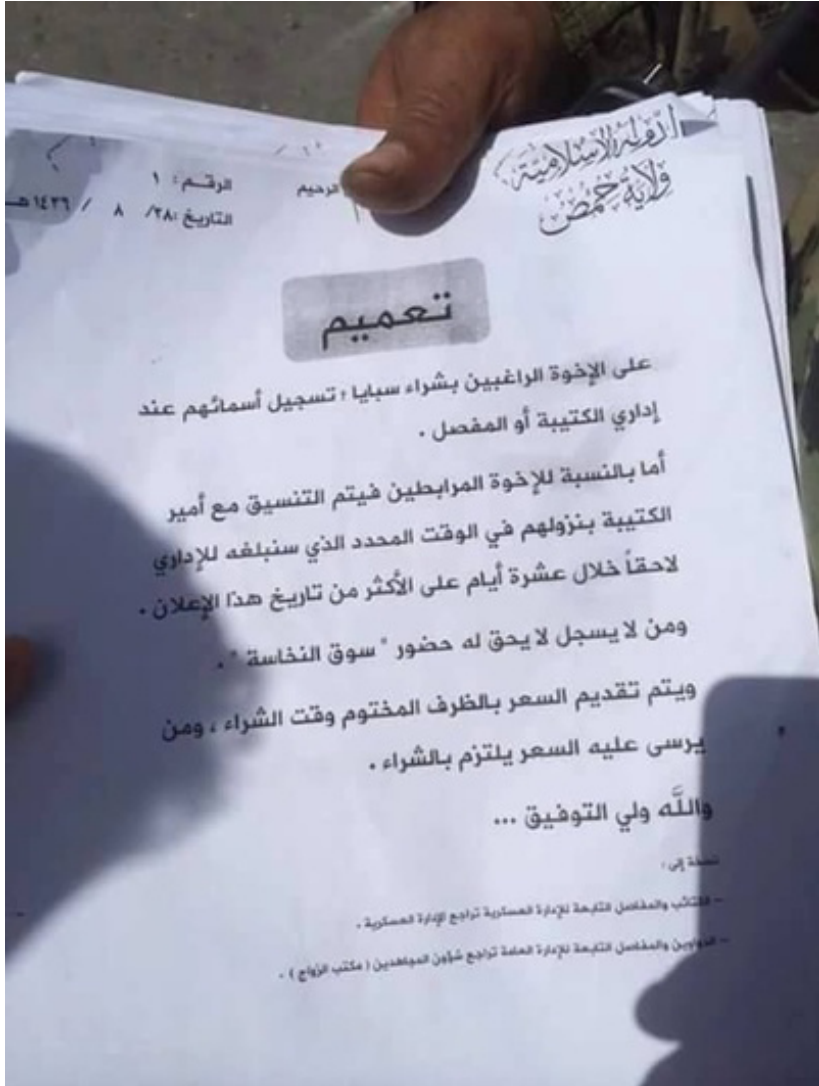 الدولة الإسلامية
ولاية حمص
الرحيم
الرقم : ١
التاريخ :٢٨/ ٨ / ١٤٣٦ هـ
تعميم
على الإخوة الراغبين بشراء سبايا ؛ تسجيل أسمائهم عند
إداري الكتيبة أو المفصل .
أما بالنسبة للإخوة المرابطين فيتم التنسيق مع أمير
الكتيبة بنزولهم في الوقت المحدد الذي سنبلغه للإداري
لاحقاً خلال عشرة أيام على الأكثر من تاريخ هذا الإعلان .
ومن لا يسجل لا يحق له حضور " سوق النخاسة " .
ويتم تقديم السعر بالظرف المختوم وقت الشراء ، ومن
يرسى عليه السعر يلتزم بالشراء .
واللَّه ولي التوفيق ...
نسخة إلى :
- الكتائب والمفاصل التابعة للإدارة العسكرية تراجع الإدارة العسكرية .
- الدواوين والمفاصل التابعة للإدارة العامة تراجع شؤون المجاهدين ( مكتب الزواج ) .